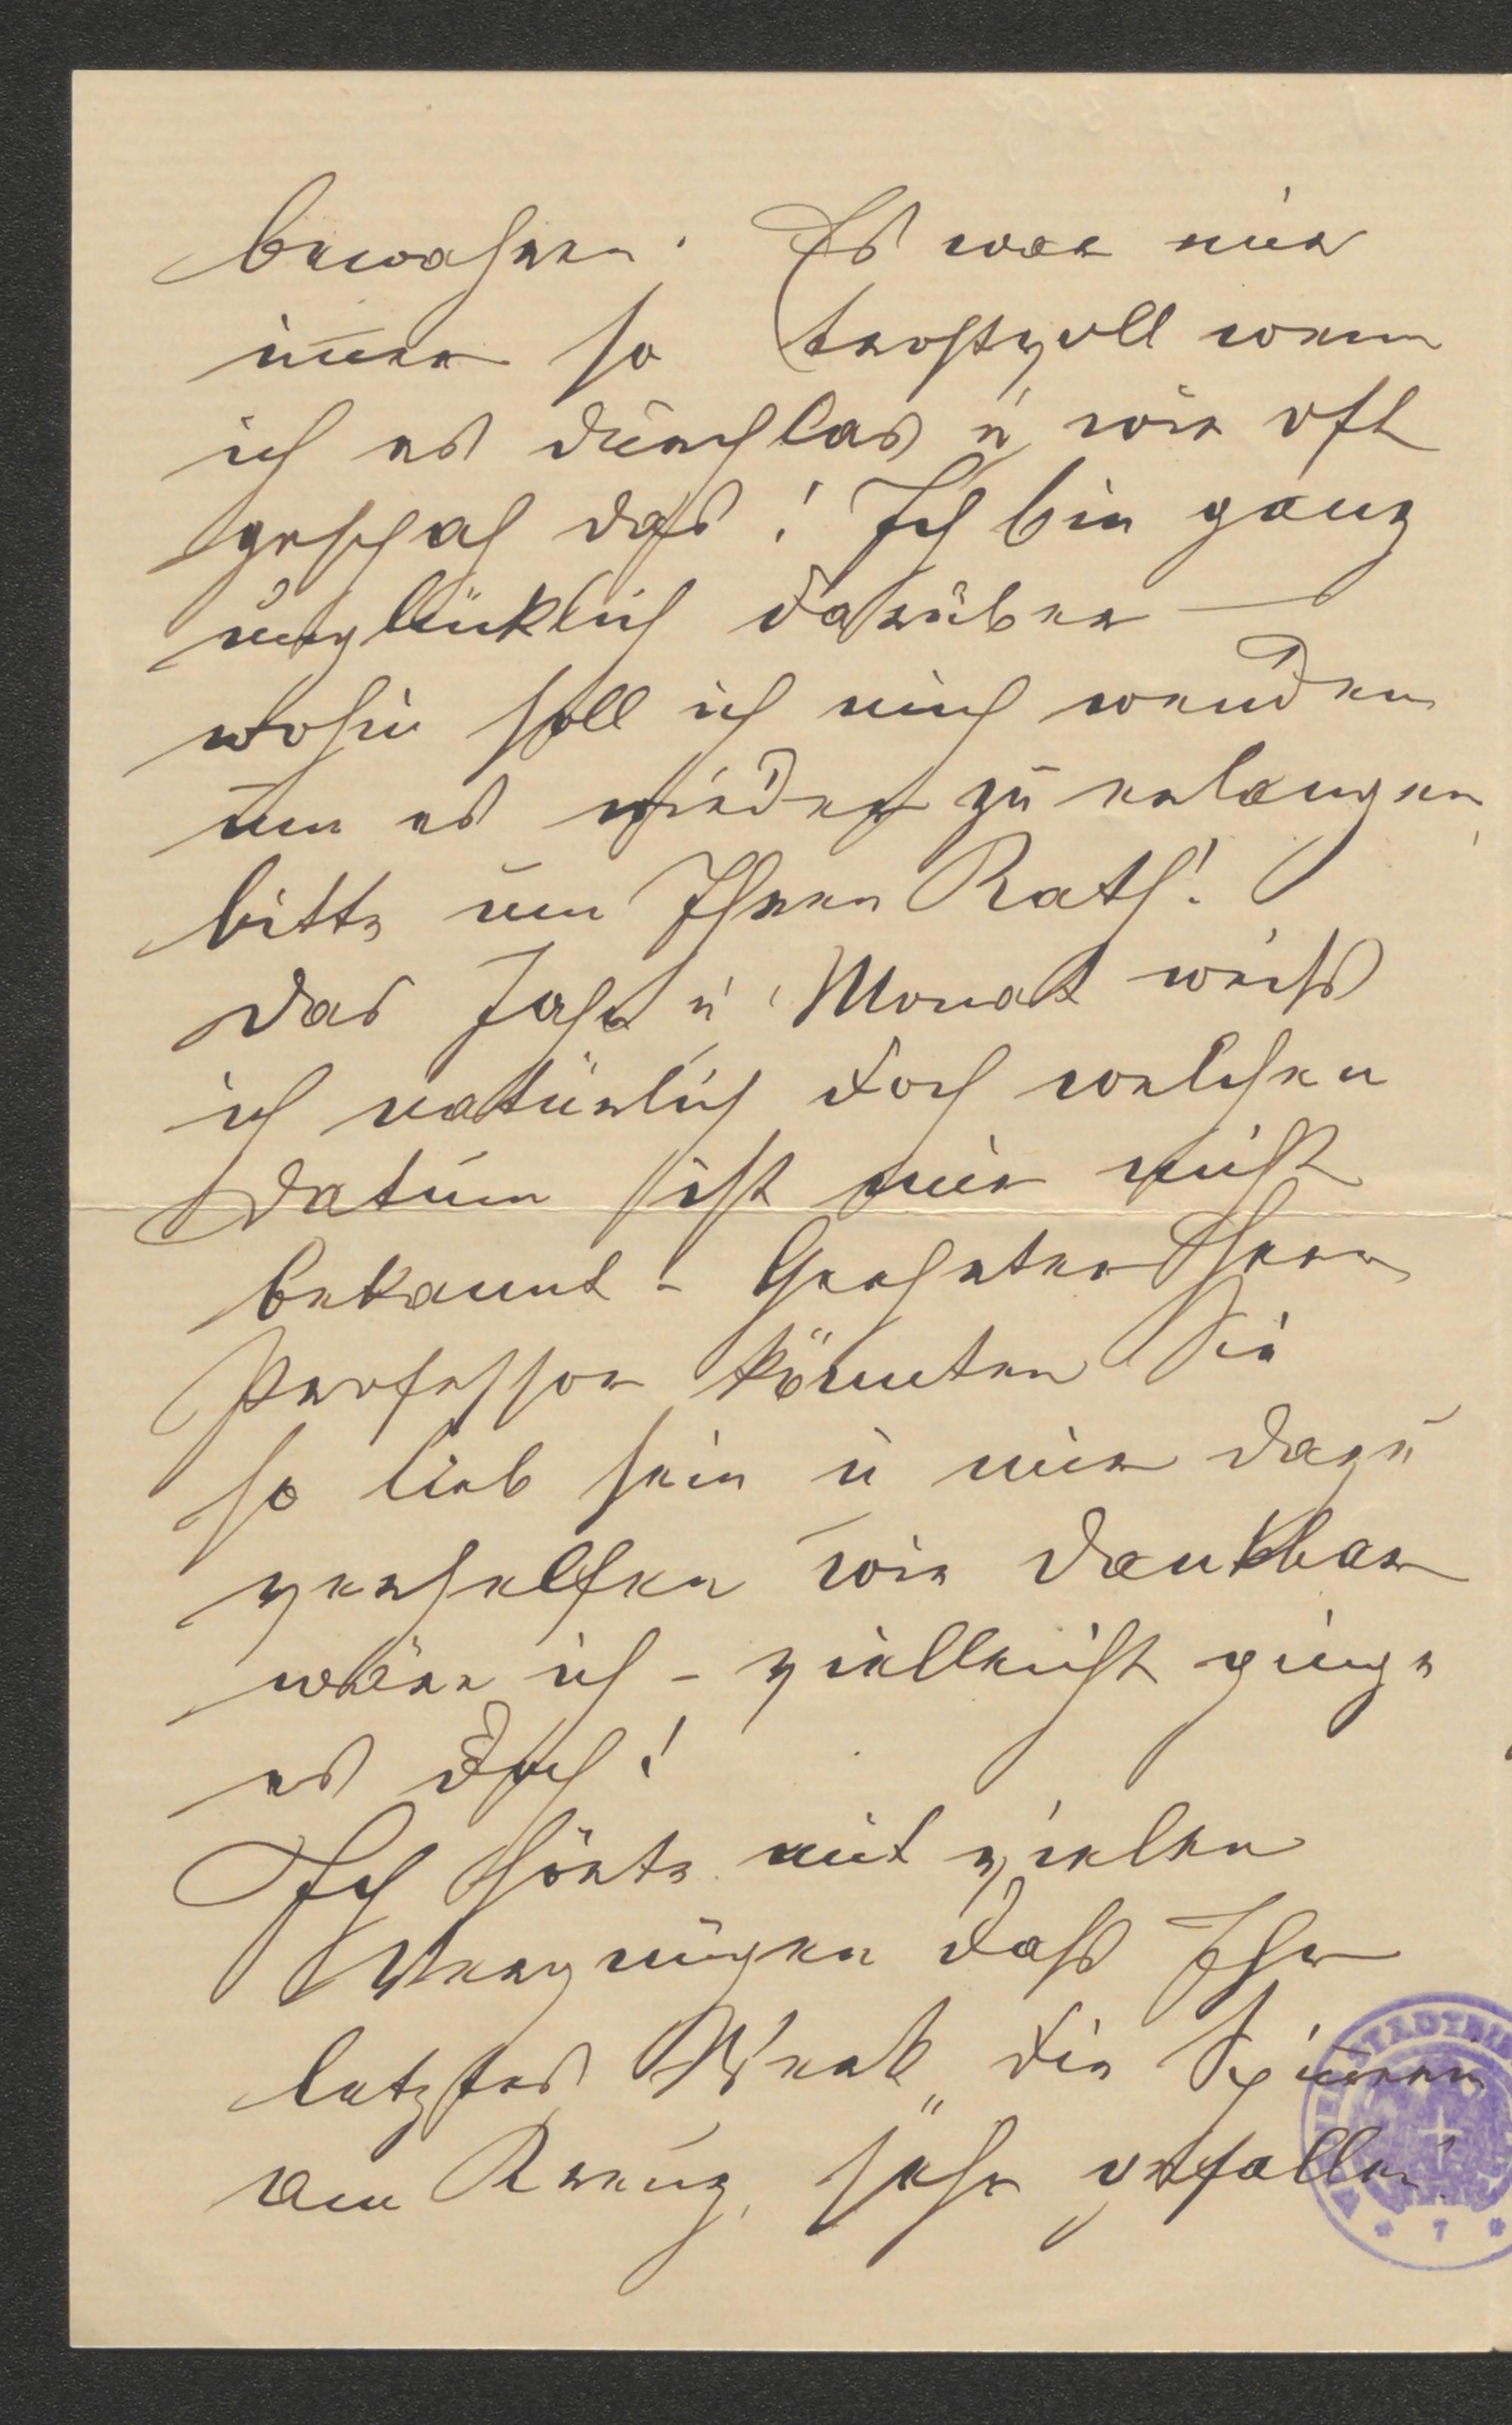 bewahren. Es war mir
im̅er so trostvoll wenn
ich es durchlas u. wie oft
geschah das! Ich bin ganz
unglücklich darüber —
wohin soll ich mich wenden
um es wieder zu erlangen,
bitte um Ihren Rath!
Das Jahr u. Monat weiß
ich natürlich doch welchen
Datum ist mir nicht
bekannt – Geehrter Herr
Professor könnten Sie
so lieb sein u mir dazu
verhelfen wie dankbar
wäre ich – vielleicht ginge
es doch!
Ich hörte mit vielen
Vergnügen daß Ihr
letztes Werk „die
am Kreuz, sehr gefallen
7